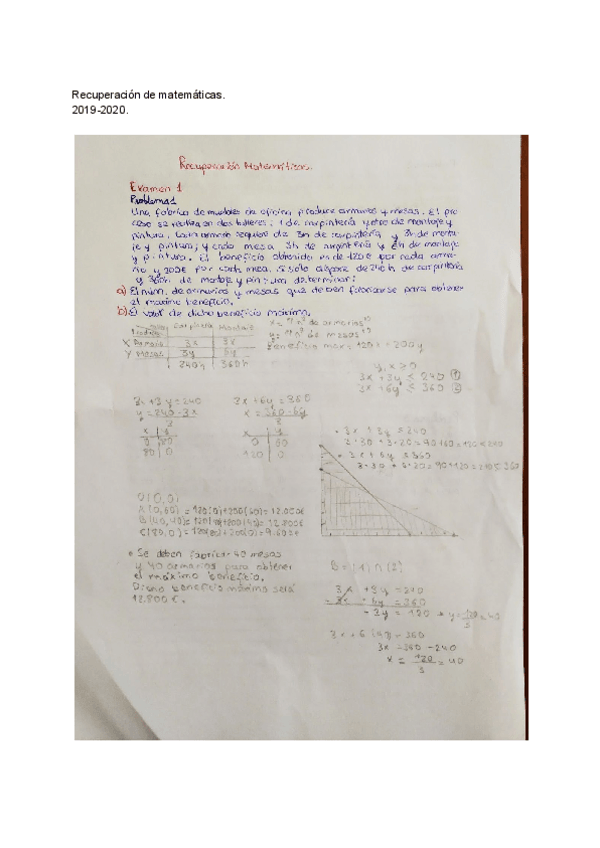 Recuperación de matemáticas.
2019-2020.
Recuperación Matemáticas.
Examen 1
Problema 1
Una fabrica de muebles de oficina produce armarios y mesas. El pro
ceso se realiza en dos talleres: 1 de carpintería y otro de montaje y
pintura. Cada armario requiere de 3h de carpintería y 3h de monta-
je y pintura; y cada mesa 3h de carpintería y 6h de montaje
y pintura. El beneficio obtenido es de 120€ por cada arma-
rio y 200€ por cada mesa. Si solo dispone de 240h de carpintería
y 360h de montaje y pintura determinar:
a) El núm. de armarios y mesas que deben fabricarse para obtener
el máximo beneficio.
b) El valor de dicho beneficio máximo.
Carpinte Montaje
X Armario 3x 3x
Y Mesas 3y 6y
240h 360h
x = "nº de armarios"
y = "nº de mesas"
Beneficio max = 120x + 200y
y, x ≥ 0
3x + 3y ≤ 240 ①
3x + 6y ≤ 360 ②
3x + 3y = 240
y = 240-3x
3
x y
0 80
80 0
3x + 6y = 360
x = 360-6y
3
x y
0 60
120 0
• 3x + 3y ≤ 240
• 3x + 6y ≤ 360
O(0,0)
A(0,60) = 120(0)+200(60) = 12.000€
B(40,40) = 120(40)+200(40) = 12.800€
C(80,0) = 120(80)+200(0) = 9.600€
• Se deben fabricar 40 mesas
y 40 armarios para obtener
el máximo beneficio.
Dicho beneficio máximo será
12.800€.
B = (1) ∩ (2)
3x + 3y = 240
- 3x - 6y = 360
- 3y = 120 → y = 120 = 40
3
3x + 6(40) = 360
3x = 360 - 240
x = 120 = 40
3